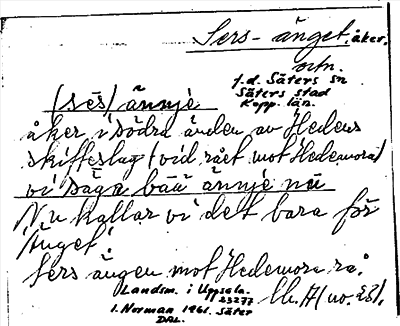 Sers-änget, åker,
ortn.
f.d. Säters sn
Säters stad
Kopp. län.
(sēs) ännjé
åker i södra änden av Hedens
skifteslag (vid rået mot Hedemora)
vi säga bää ännjé nu
Nu kallar vi det bara för
Änget.
Sers ängen mot Hedemora rå.
Landsm. i Uppsala.
23277
1. Norman 1961. Säter
DAL.